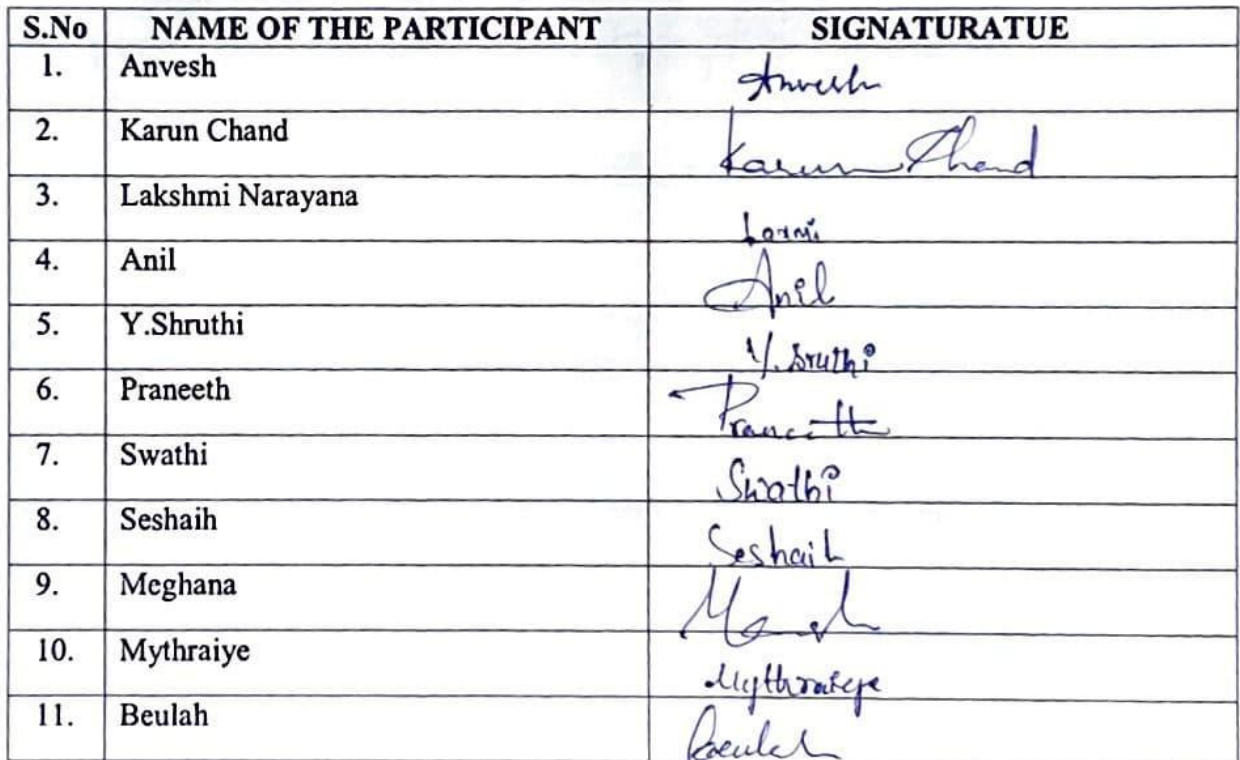 S.No NAME OF THE PARTICIPANT SIGNATURATUE
1. Anvesh Anvesh
2. Karun Chand Karun Chand
3. Lakshmi Narayana Laxmi
4. Anil Anil
5. Y.Shruthi Y. Sruthi
6. Praneeth Praneeth
7. Swathi Swathi
8. Seshaih Seshaih
9. Meghana
10. Mythraiye Mythraiye
11. Beulah Beulah